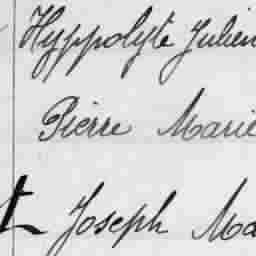 Hyppolyte Julien
Pierre Marie
Joseph Ma